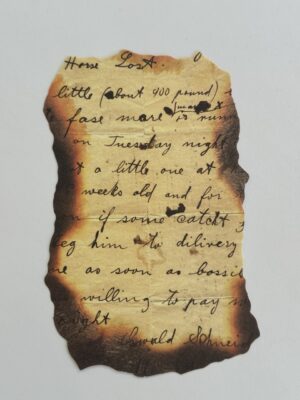 Horse Lost.
little (about 900 pound)
fase mare is runn
on Tuesday night
t a little one at h
weeks old and for
n if some catcht
eg him to dilivery
e as soon as bossi
willing to pay m
ght
Oswald Schnei